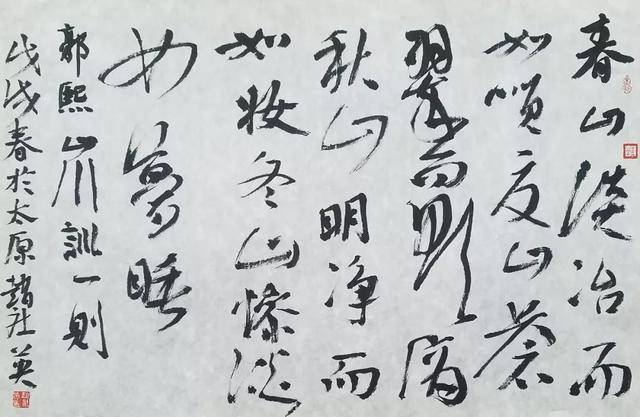 春山淡冶而
如夏山蒼
翠而滴
秋山明净而
如妆冬山惨淡
如夢睡
郭熙山川訓一則
戊戌春於太原趙社英